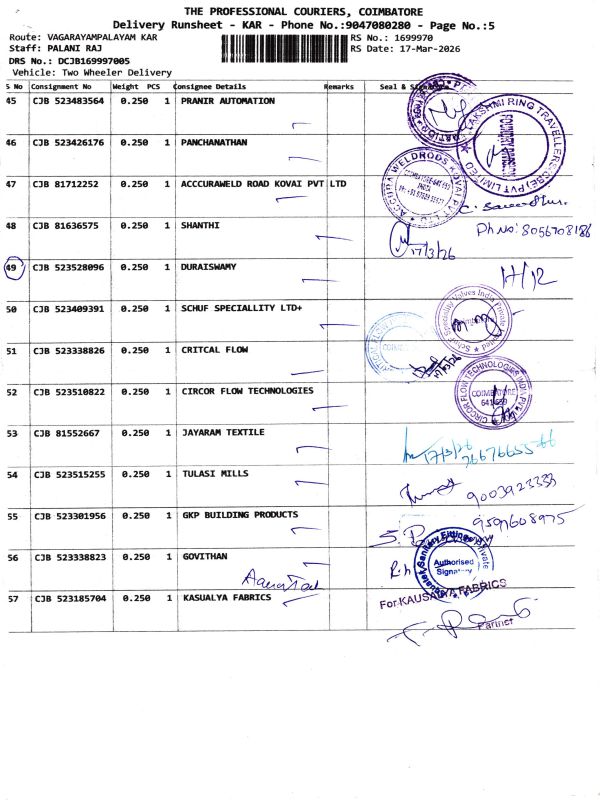 THE PROFESSIONAL COURIERS, COIMBATORE
Delivery Runsheet - KAR - Phone No.:9047080280 - Page No.:5
Route: VAGARAYAMPALAYAM KAR
RS No.: 1699970
Staff: PALANI RAJ
RS Date: 17-Mar-2026
DRS No.: DCJB169997005
Vehicle: Two Wheeler Delivery
S No Consignment No Weight PCS Consignee Details Remarks Seal &
45 CJB 523483564 0.250 1 PRANIR AUTOMATION
46 CJB 523426176 0.250 1 PANCHANATHAN
LAKSHMI RING TRAVELLERS (CBE) PVT LIMITED
47 CJB 81712252 0.250 1 ACCCURAWELD ROAD KOVAI PVT LTD
ACCURA WELDRODS KOVAI PVT LTD
48 CJB 81636575 0.250 1 SHANTHI
Ph No: 8056708186
17/3/26
49 CJB 523528096 0.250 1 DURAISWAMY
H/12
50 CJB 523409391 0.250 1 SCHUF SPECIALLITY LTD+
51 CJB 523338826 0.250 1 CRITCAL FLOW
52 CJB 523510822 0.250 1 CIRCOR FLOW TECHNOLOGIES
CIRCOR FLOW TECHNOLOGIES INDIA PVT
COIMBATORE
53 CJB 81552667 0.250 1 JAYARAM TEXTILE
17/3/26
54 CJB 523515255 0.250 1 TULASI MILLS
9003923333
55 CJB 523301956 0.250 1 GKP BUILDING PRODUCTS
9597608975
56 CJB 523338823 0.250 1 GOVITHAN
Sanitary Fittings Private
Authorised
Signatory
57 CJB 523185704 0.250 1 KASUALYA FABRICS
For KAUSALYA FABRICS